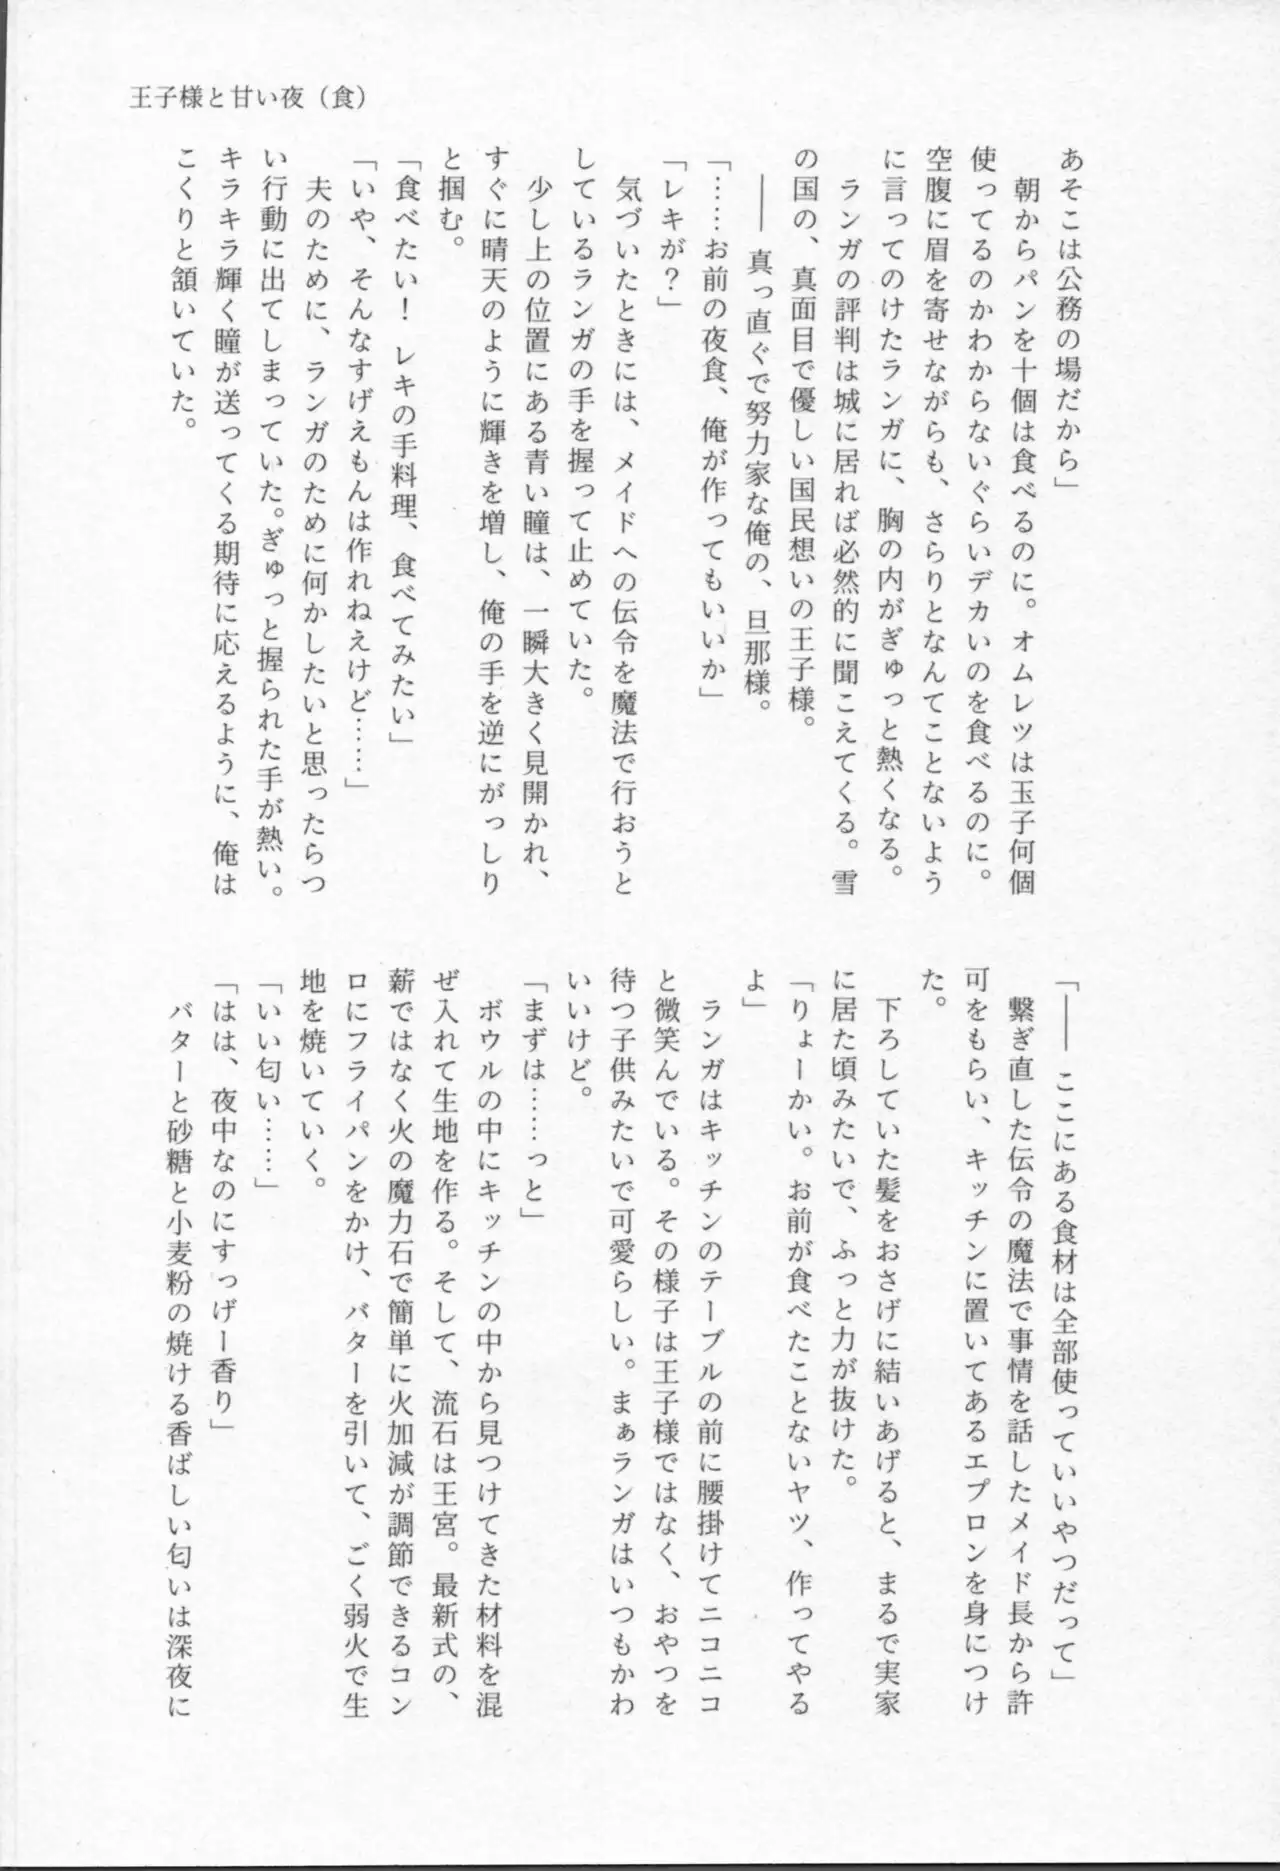 王子様と甘い夜（食）
あそこは公務の場だから」
朝からパンを十個は食べるのに。オムレツは玉子何個
使ってるのかわからないぐらいデカいのを食べるのに。
空腹に眉を寄せながらも、さらりとなんてことないよう
に言ってのけたランガに、胸の内がぎゅっと熱くなる。
ランガの評判は城に居れば必然的に聞こえてくる。雪
の国の、真面目で優しい国民想いの王子様。
――真っ直ぐで努力家な俺の、旦那様。
「……お前の夜食、俺が作ってもいいか」
「レキが？」
気づいたときには、メイドへの伝令を魔法で行おうと
しているランガの手を握って止めていた。
少し上の位置にある青い瞳は、一瞬大きく見開かれ、
すぐに晴天のように輝きを増し、俺の手を逆にがっしり
と掴む。
「食べたい！ レキの手料理、食べてみたい」
「いや、そんなすげえもんは作れねえけど……」
夫のために、ランガのために何かしたいと思ったらつ
い行動に出てしまっていた。ぎゅっと握られた手が熱い。
キラキラ輝く瞳が送ってくる期待に応えるように、俺は
こくりと頷いていた。
「――ここにある食材は全部使っていいやつだって」
繋ぎ直した伝令の魔法で事情を話したメイド長から許
可をもらい、キッチンに置いてあるエプロンを身につけ
た。
下ろしていた髪をおさげに結いあげると、まるで実家
に居た頃みたいで、ふっと力が抜けた。
「りょーかい。お前が食べたことないヤツ、作ってやる
よ」
ランガはキッチンのテーブルの前に腰掛けてニコニコ
と微笑んでいる。その様子は王子様ではなく、おやつを
待つ子供みたいで可愛らしい。まぁランガはいつもかわ
いいけど。
「まずは……っと」
ボウルの中にキッチンの中から見つけてきた材料を混
ぜ入れて生地を作る。そして、流石は王宮。最新式の、
薪ではなく火の魔力石で簡単に火加減が調節できるコン
ロにフライパンをかけ、バターを引いて、ごく弱火で生
地を焼いていく。
「いい匂い……」
「はは、夜中なのにすっげー香り」
バターと砂糖と小麦粉の焼ける香ばしい匂いは深夜に